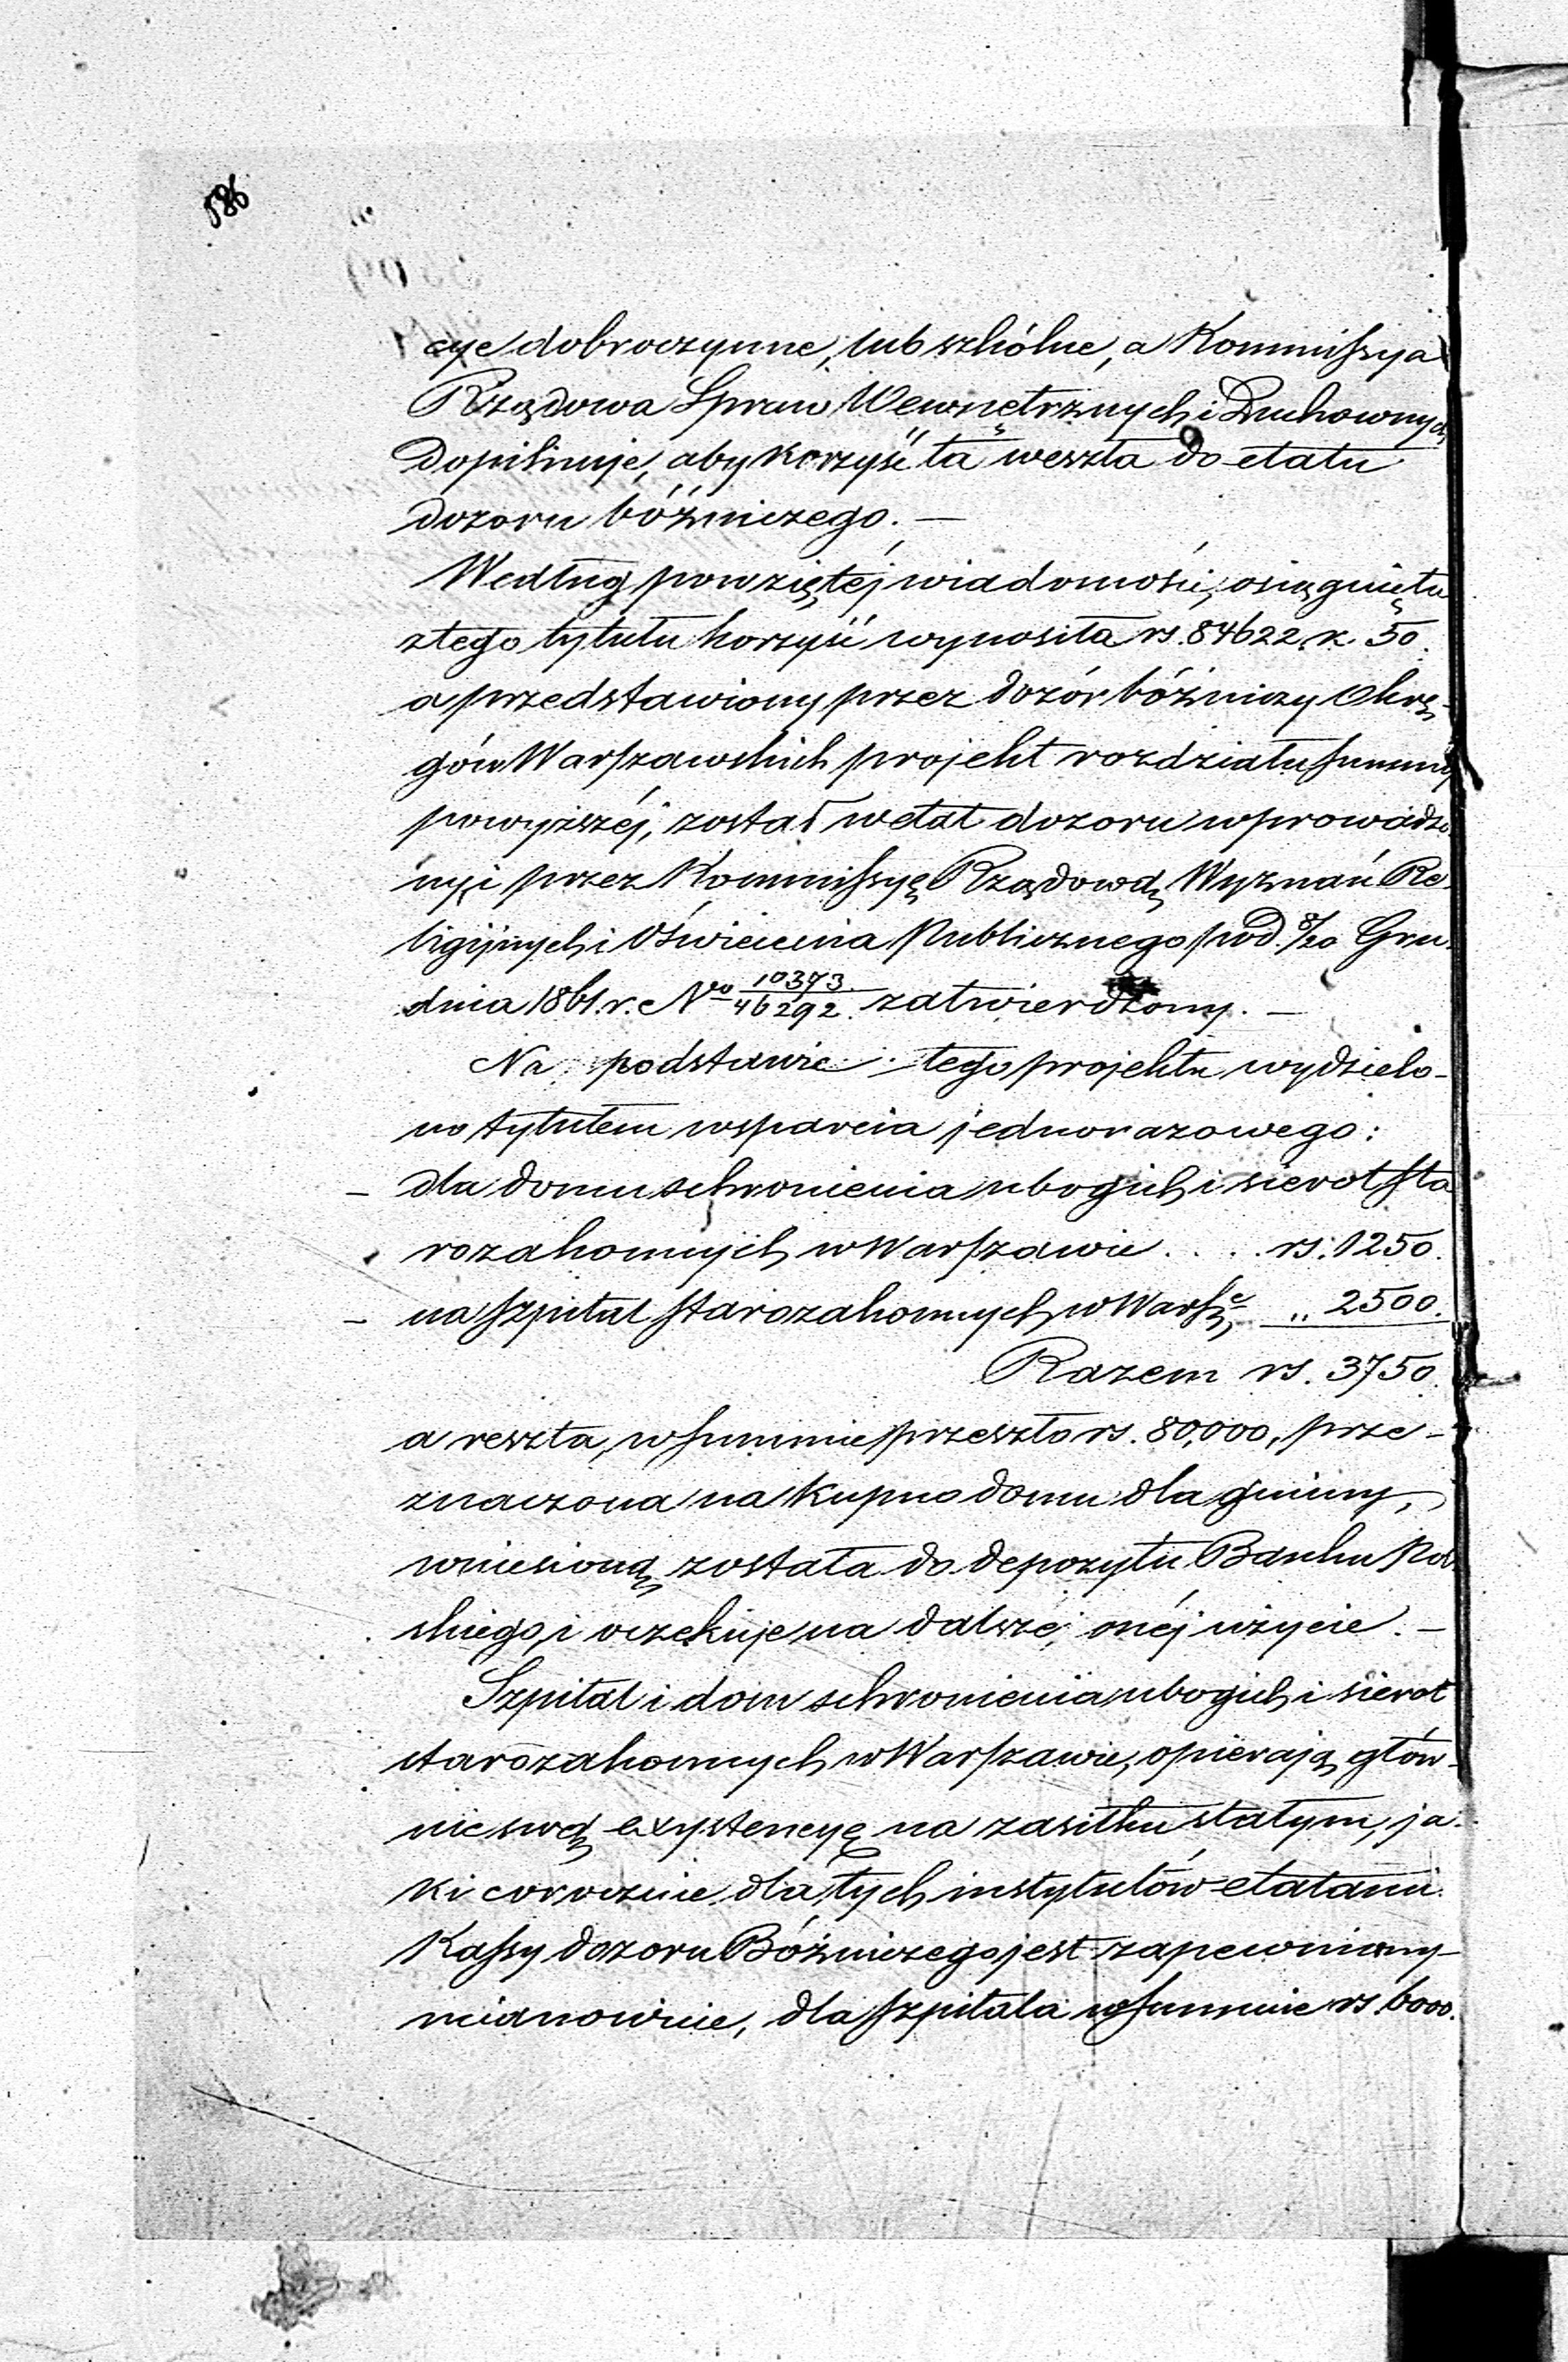 586
cye dobroczynne, lub szkólne, a Kommissya
Rządowa Spraw Wewnętrznych i Duchownych
dopilnuje, aby korzyść ta weszła do etatu
dozoru bóżniczego. —
Według powziętéj wiadomości, osiągnięta
z tego tytułu korzyść wynosiła rs. 84622 k. 50.
a przedstawiony przez dozór bóżniczy Okrę-
gów Warszawskich projekt rozdziału summy
powyższéj, został w etat dozoru wprowadzo
ny i przez Kommissyę Rządową Wyznań Re-
ligijnych i Oświecenia Publicznego pod d. 8/20 Gru-
dnia 1861 r. No 10373/46292. zatwierdzony. —
Na podstawie tego projektu wydzielo-
no tytułem wsparcia jednorazowego:
— dla domu schronienia ubogich i sierot sta
rozakonnych w Warszawie . . . . rs. 1250.
— na szpital starozakonnych w Warsz e „ 2500.
Razem rs. 3750.
a reszta, w summie przeszło rs. 80,000, prze-
znaczona na kupno domu dla gminy,
wniesioną została do depozytu Banku Pol-
skiego, i oczekuje na dalsze onéj użycie. —
Szpital i dom schronienia ubogich i sierot
starozakonnych w Warszawie, opierają głów-
nie swą exystencyę na zasiłku stałym, ja-
ki corocznie dla tych instytutów etatami
Kassy dozoru Bóżniczego jest zapewniony
mianowicie, dla szpitala w summie rs. 6000.